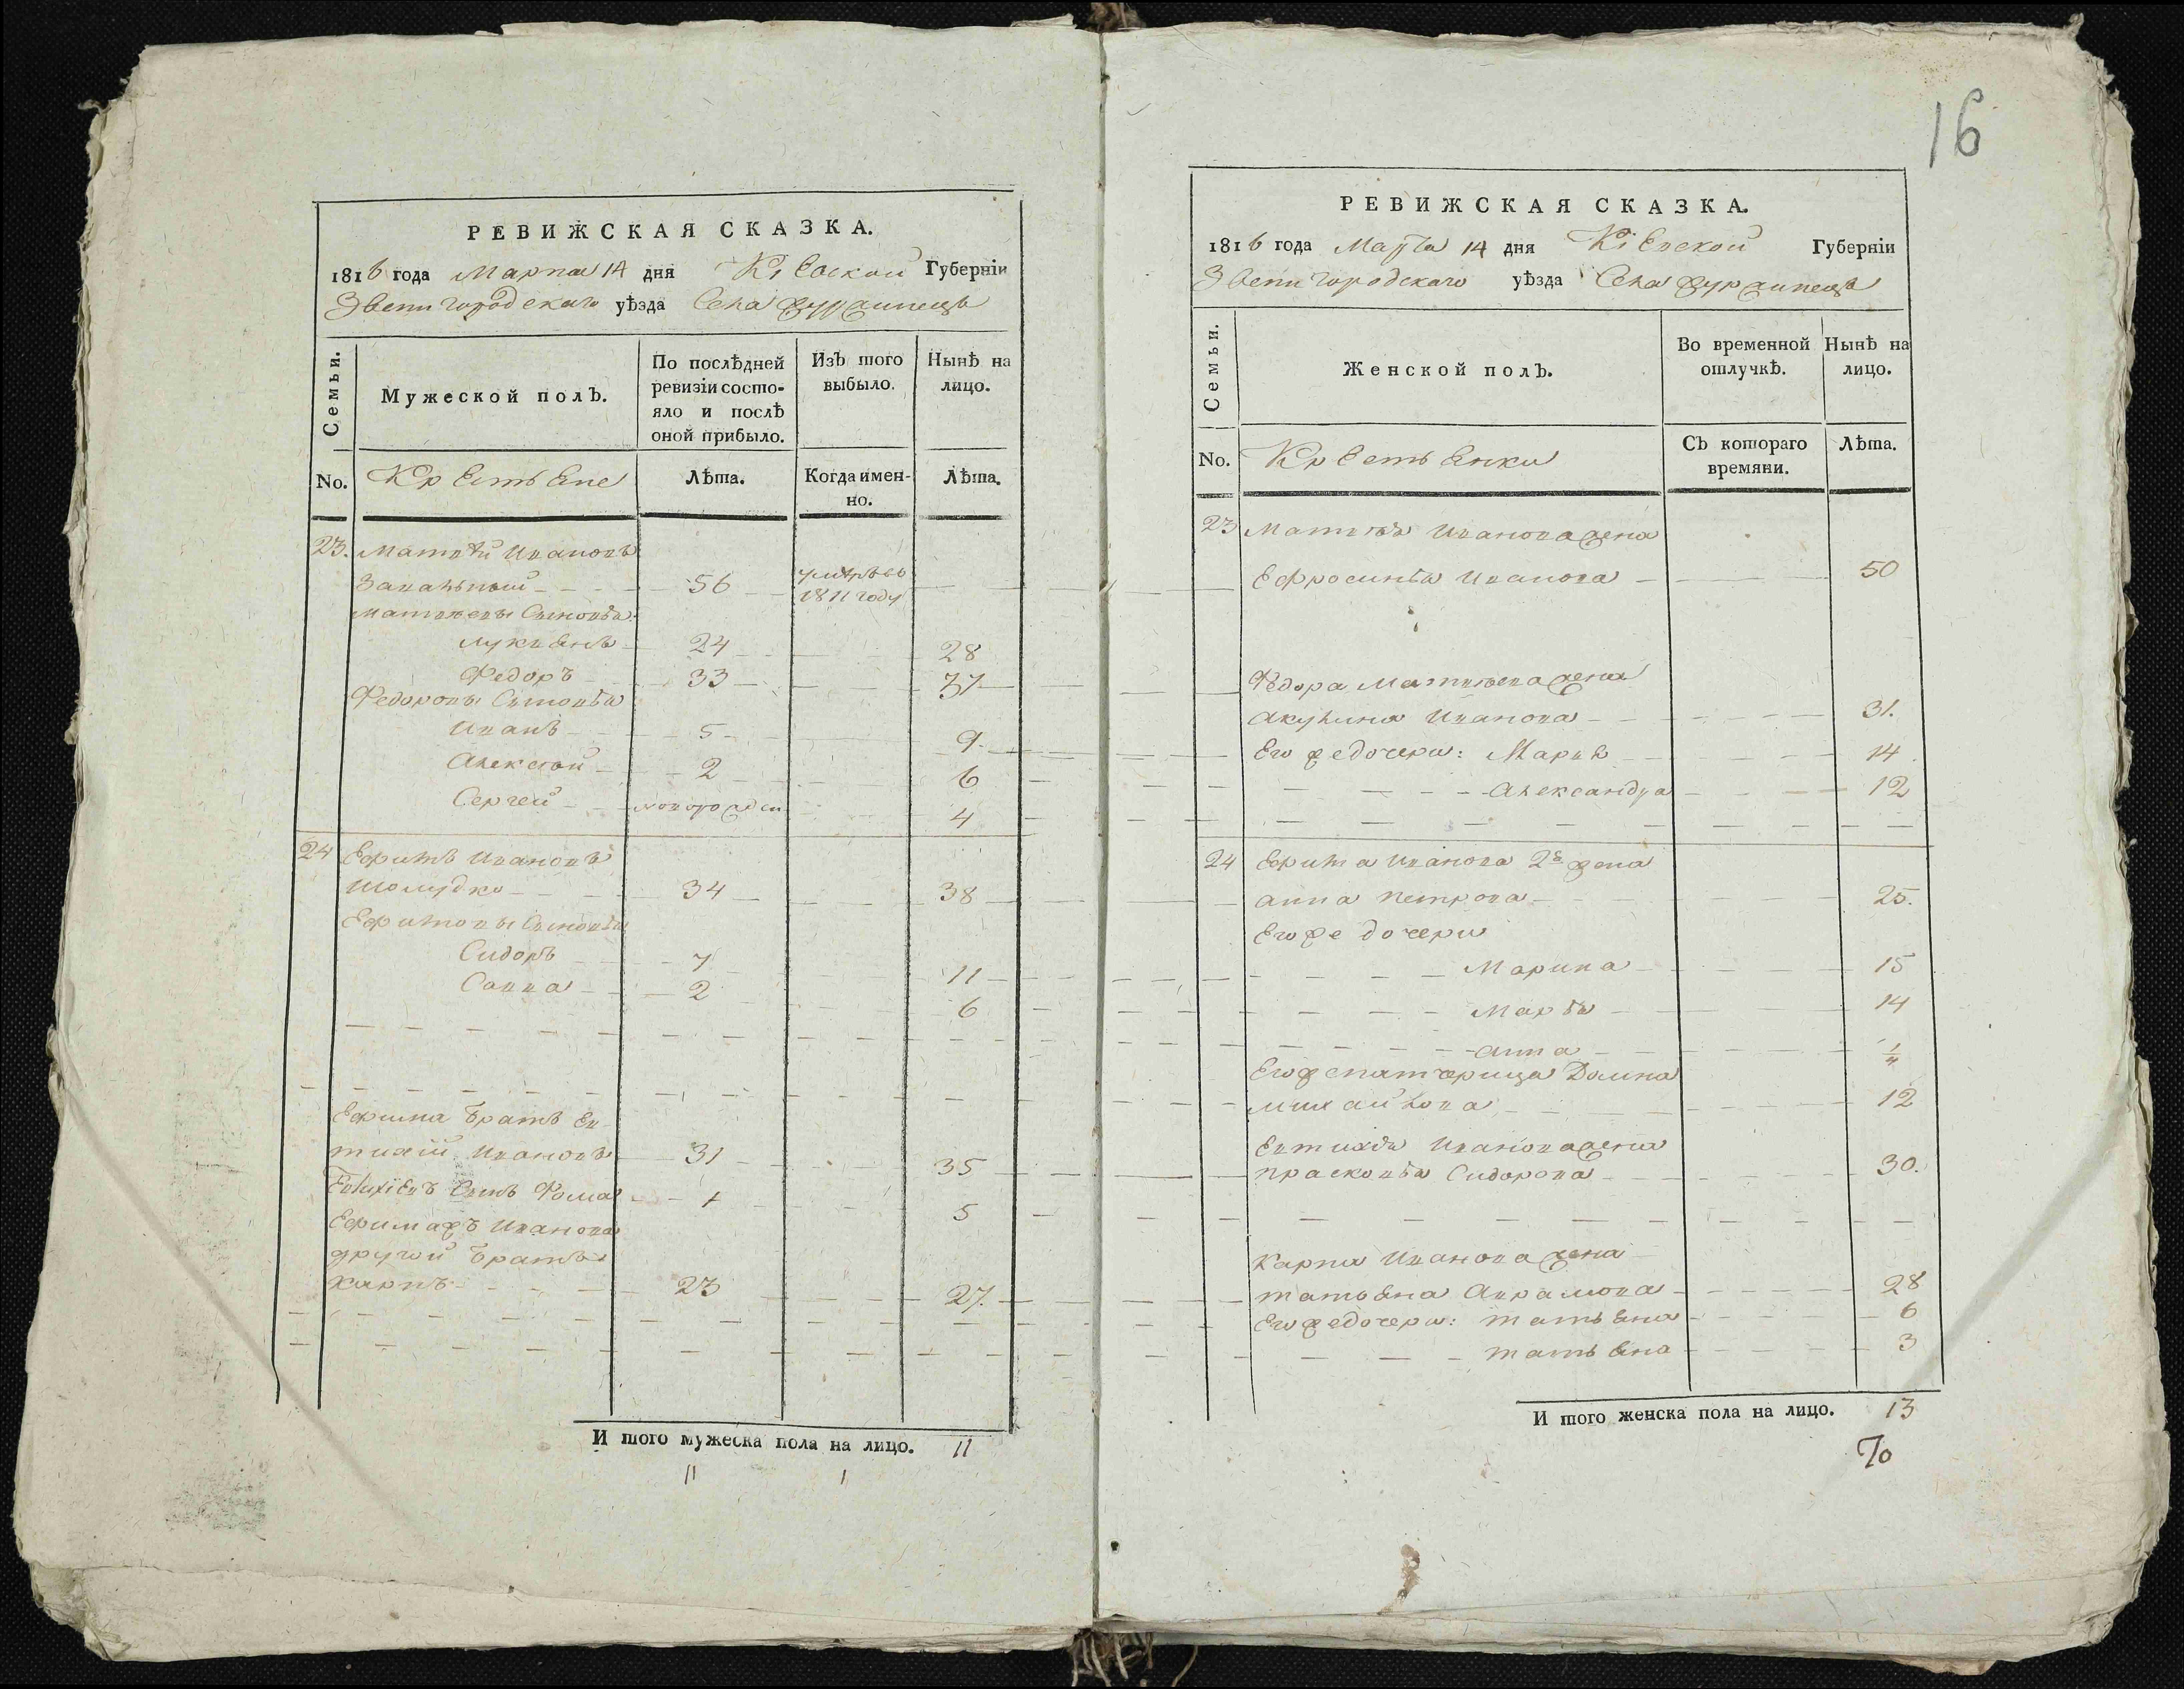 РЕВИЖСКАЯ СКАЗКА.
1816 года Марта 14 дня Кіевской Губерніи
Звенигородскаго уѣзда Села Журжинецъ
Семьи.
Мужеской полъ.
По послѣдней ревизіи состо-
яло и послѣ
оной прибыло.
Изъ того
выбыло.
Нынѣ на
лицо.
No.
Крестьяне
Лѣта.
Когда имен-
но.
Лѣта.
23. Матвѣй Ивановъ
56 умѣръ въ
1811 году
Матвѣевы Сыновья
Лукьянъ 24 28
Федоръ 33 37
Федоровы Сыновья
Иванъ 5 9.
Алексѣй 2 6
Сергей новорожден 4
24 Ефимъ Ивановъ
Шолудко 34 38
Ефимовы Сыновья
Сидоръ 7 11
Савва 2 6
Ефима братъ Ев-
тихій Ивановъ 31 35
Евтихіевъ Сынъ Фома 1 5
Ефимажъ Иванова
другой братъ
Карпъ 23 27.
И того мужеска пола на лицо. 11
11 1
16
РЕВИЖСКАЯ СКАЗКА.
1816 года Марта 14 дня Кіевской Губерніи
Звенигородскаго уѣзда Села Журжинецъ
Семьи.
Женской полъ.
Во временной
отлучкѣ.
Нынѣ на
лицо.
No.
Крестьянки
Съ котораго
времяни.
Лѣта.
23 Матвѣя Иванова жена
Ефросинья Иванова 50
Федора Матвѣева жена
Акулина Иванова 31.
Его же дочери: Марья 14
Александра 12
24 Ефима Иванова 2я жена
Анна Петрова 25.
Его же дочери
Марина 15
Марья 14
Анна
Его же патчерица Домна
Михайлова 12
Евтихія Иванова жена
Прасковья Сидорова 30.
Карпа Иванова жена
Татьяна Аврамова 28
Его же дочери: Татьяна 6
Татьяна 3
И того женска пола на лицо. 13